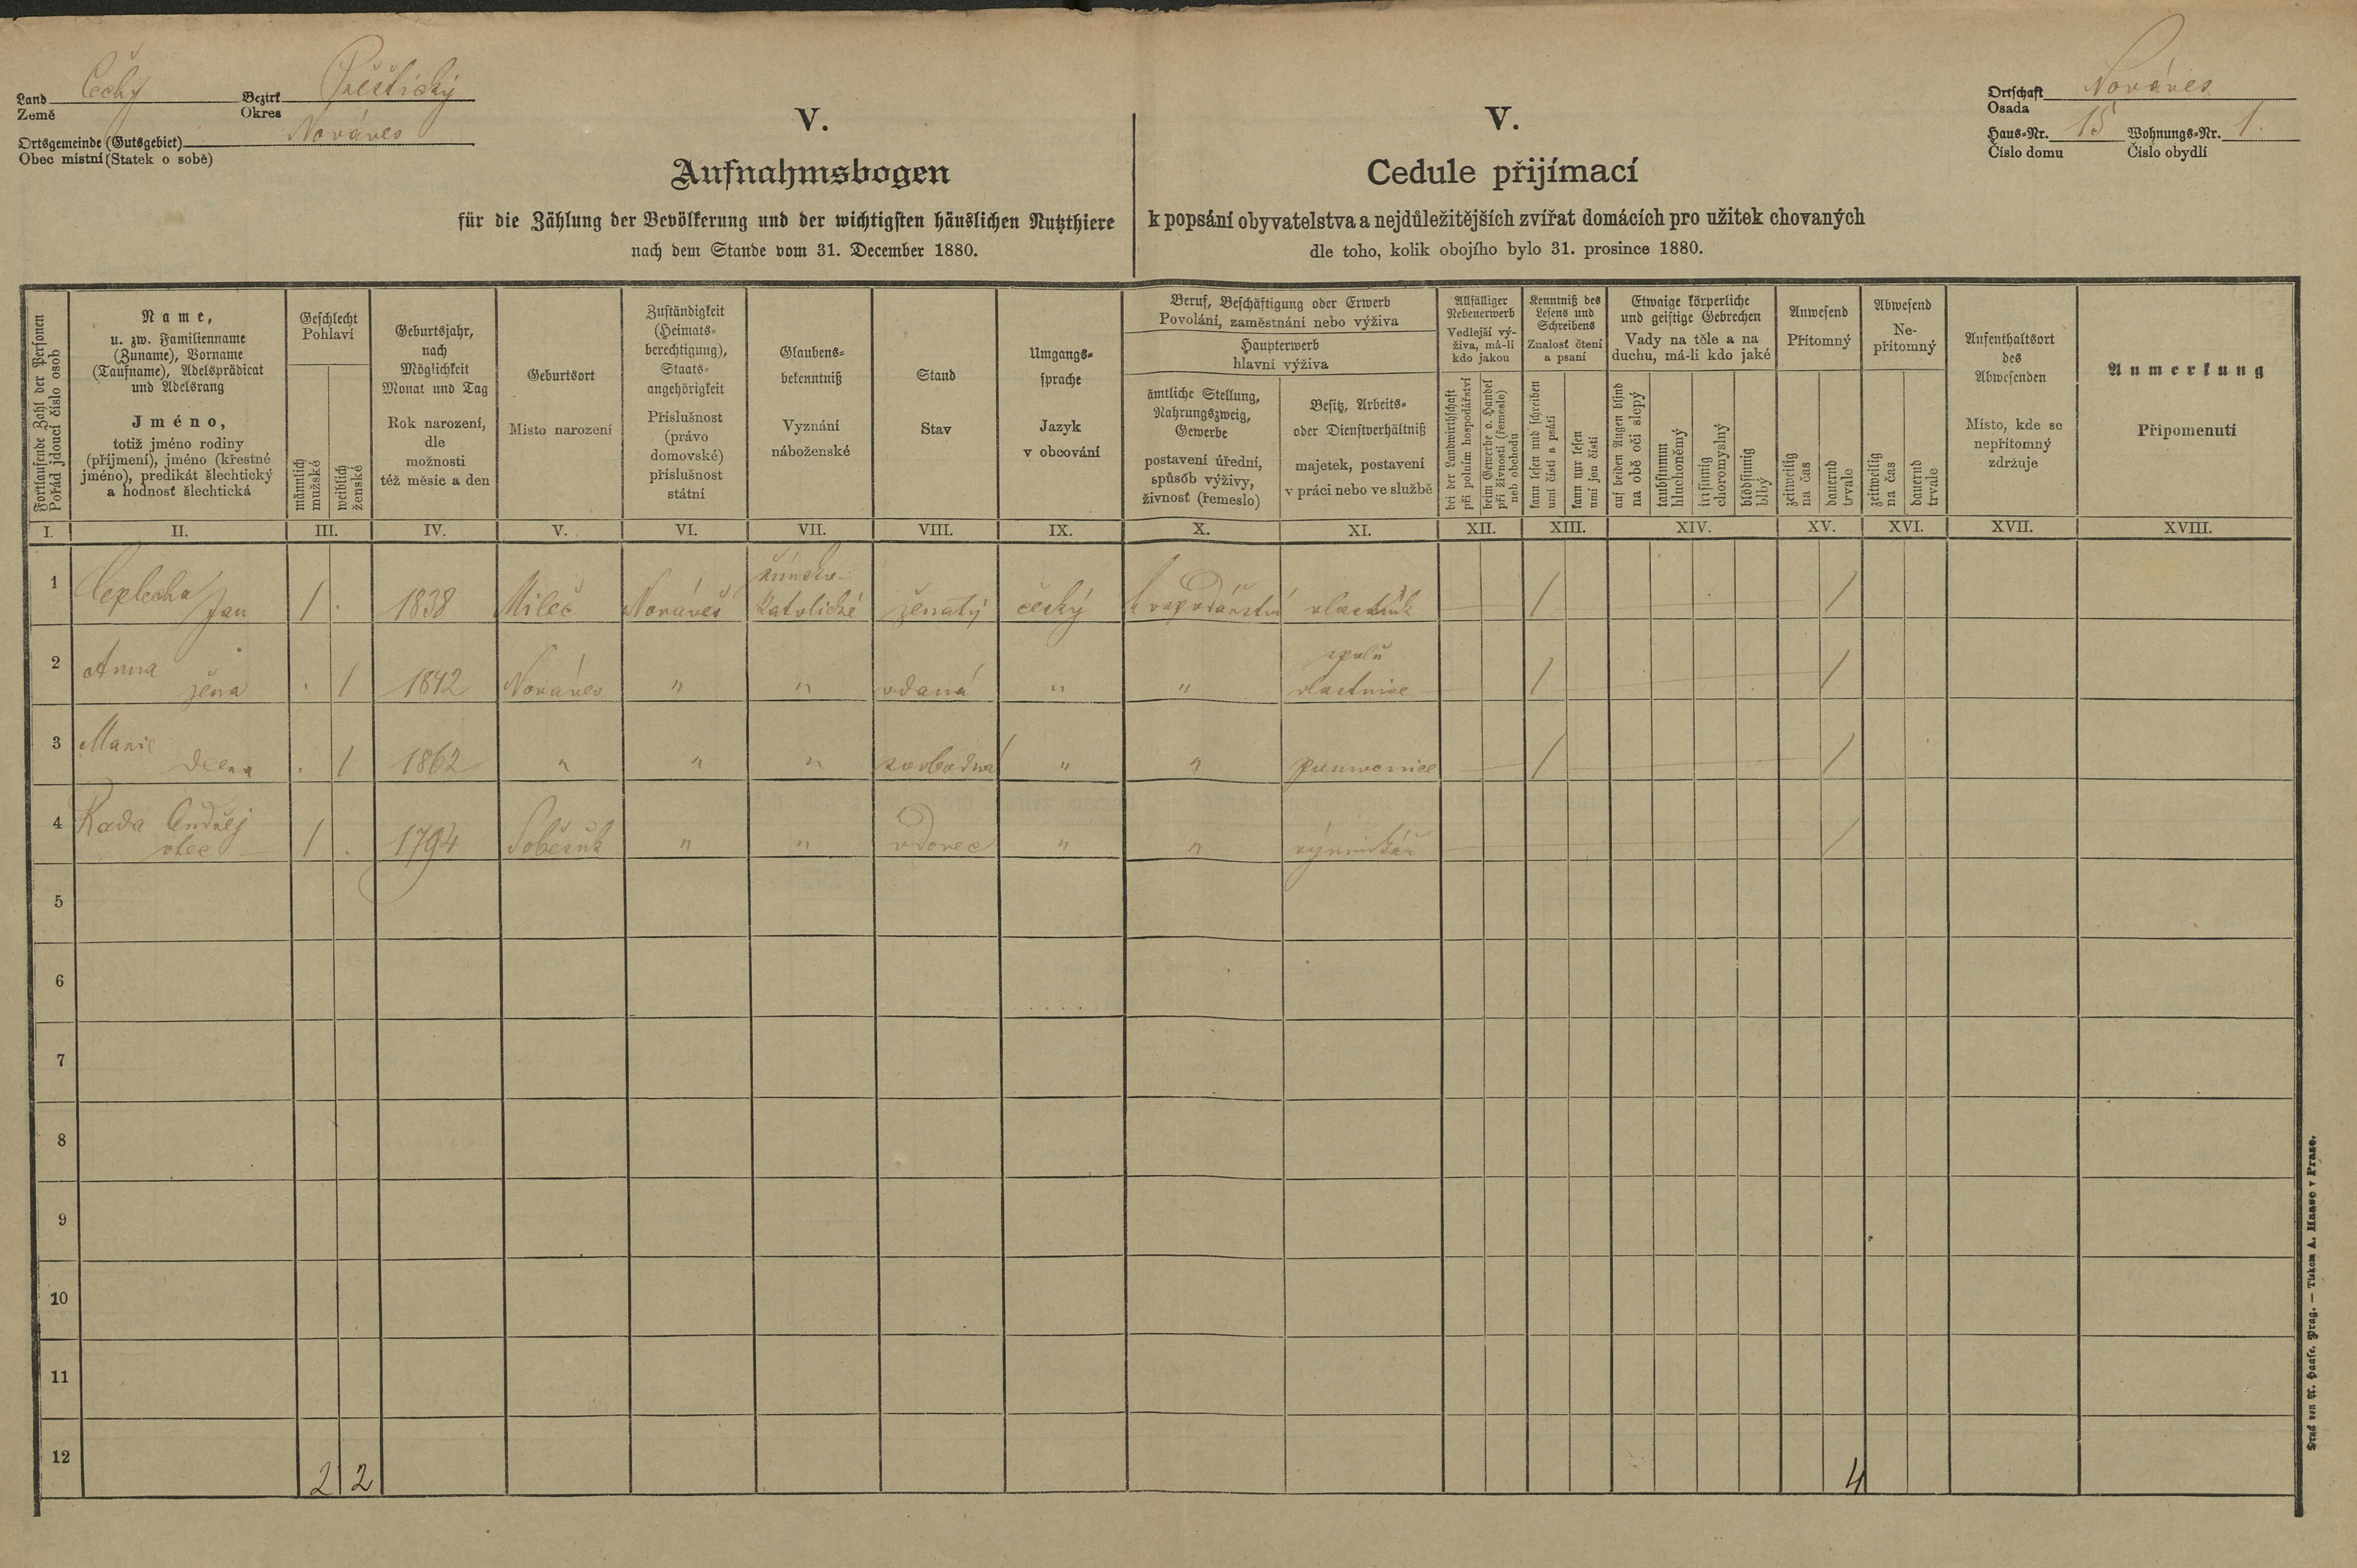 Land Čechy Bezirk Přeštický
Země Okres
Ortsgemeinde (Gutsgebiet) Nováves
Obec místní (Statek o sobě)
V.
Aufnahmsbogen
für die Zählung der Bevölkerung und der wichtigsten häuslichen Nutzthiere
nach dem Stande vom 31. December 1880.
V.
Cedule přijímací
k popsání obyvatelstva a nejdůležitějších zvířat domácích pro užitek chovaných
dle toho, kolik obojího bylo 31. prosince 1880.
Ortschaft Nováves
Osada
Haus-Nr. 15 Wohnungs-Nr. 1.
Číslo domu Číslo obydlí
Fortlaufende Zahl der Personen
Pořád jdoucí číslo osob
Name,
u. zw. Familienname
(Zuname), Vorname
(Taufname), Adelsprädicat
und Adelsrang
Jméno,
totiž jméno rodiny
(příjmení), jméno (křestné
jméno), predikát šlechtický
a hodnosť šlechtická
Geschlecht
Pohlaví
männlich
mužské
weiblich
ženské
Geburtsjahr,
nach
Möglichkeit
Monat und Tag
Rok narození,
dle
možnosti
též měsíc a den
Geburtsort
Místo narození
Zuständigkeit
(Heimats-
berechtigung),
Staats-
angehörigkeit
Příslušnost
(právo
domovské)
příslušnost
státní
Glaubens-
bekenntniß
Vyznání
náboženské
Stand
Stav
Umgangs-
sprache
Jazyk
v obcování
Beruf, Beschäftigung oder Erwerb
Povolání, zaměstnání nebo výživa
Haupterwerb
hlavní výživa
ämtliche Stellung,
Nahrungszweig,
Gewerbe
postavení úřední,
spůsób výživy,
živnosť (řemeslo)
Besitz, Arbeits-
oder Dienstverhältniß
majetek, postavení
v práci nebo ve službě
Allfälliger
Nebenerwerb
Vedlejší vý-
živa, má-li
kdo jakou
bei der Landwirthschaft
při polním hospodářství
beim Gewerbe o. Handel
při živnosti (řemesle)
neb obchodu
Kenntniß des
Lesens und
Schreibens
Znalosť čtení
a psaní
kann lesen und schreiben
umí čísti a psáti
kann nur lesen
umí jen čísti
Etwaige körperliche
und geistige Gebrechen
Vady na těle a na
duchu, má-li kdo jaké
auf beiden Augen blind
na obě oči slepý
taubstumm
hluchoněmý
irrsinnig
choromyslný
blödsinnig
blbý
Anwesend
Přítomný
zeitweilig
na čas
dauernd
trvale
Abwesend
Ne-
přítomný
zeitweilig
na čas
dauernd
trvale
Aufenthaltsort
des
Abwesenden
Místo, kde se
nepřítomný
zdržuje
Anmerkung
Připomenutí
I. II. III. IV. V. VI. VII. VIII. IX. X. XI. XII. XIII. XIV. XV. XVI. XVII. XVIII.
římsko-
1 Ceplecha Jan / . 1838 Mileč Nováves katolické ženatý český hospodářství vlastník / /
2 Anna spolu
žena . / 1842 Nováves " " vdaná " " vlastnice / /
3 Marie
dcera . / 1862 " " " svobodná " " pomocnice / /
4 Rada Ondřej
otec / . 1794 Soběsuk " " vdovec " " výminkář /
5
6
7
8
9
10
11
12
2 2 4
Druck von A. Haase, Prag. — Tiskem A. Haase v Praze.